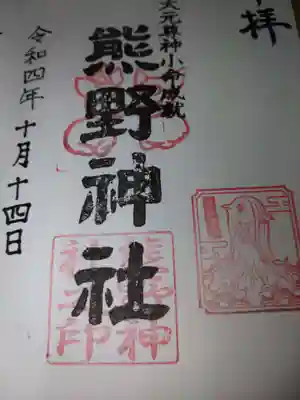 拝
大元縣神小命成就
熊野神社
熊野神社之印
令和四年十月十四日